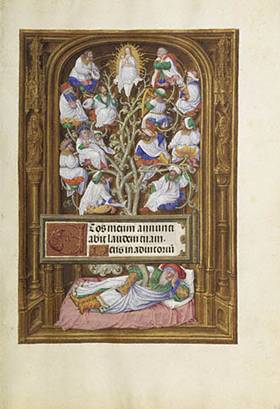 Et os meum annunti
abit laudem tuam.
Deus in adiutoriu